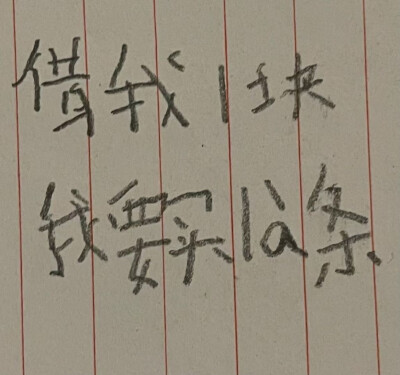 借我1块
我要买là条